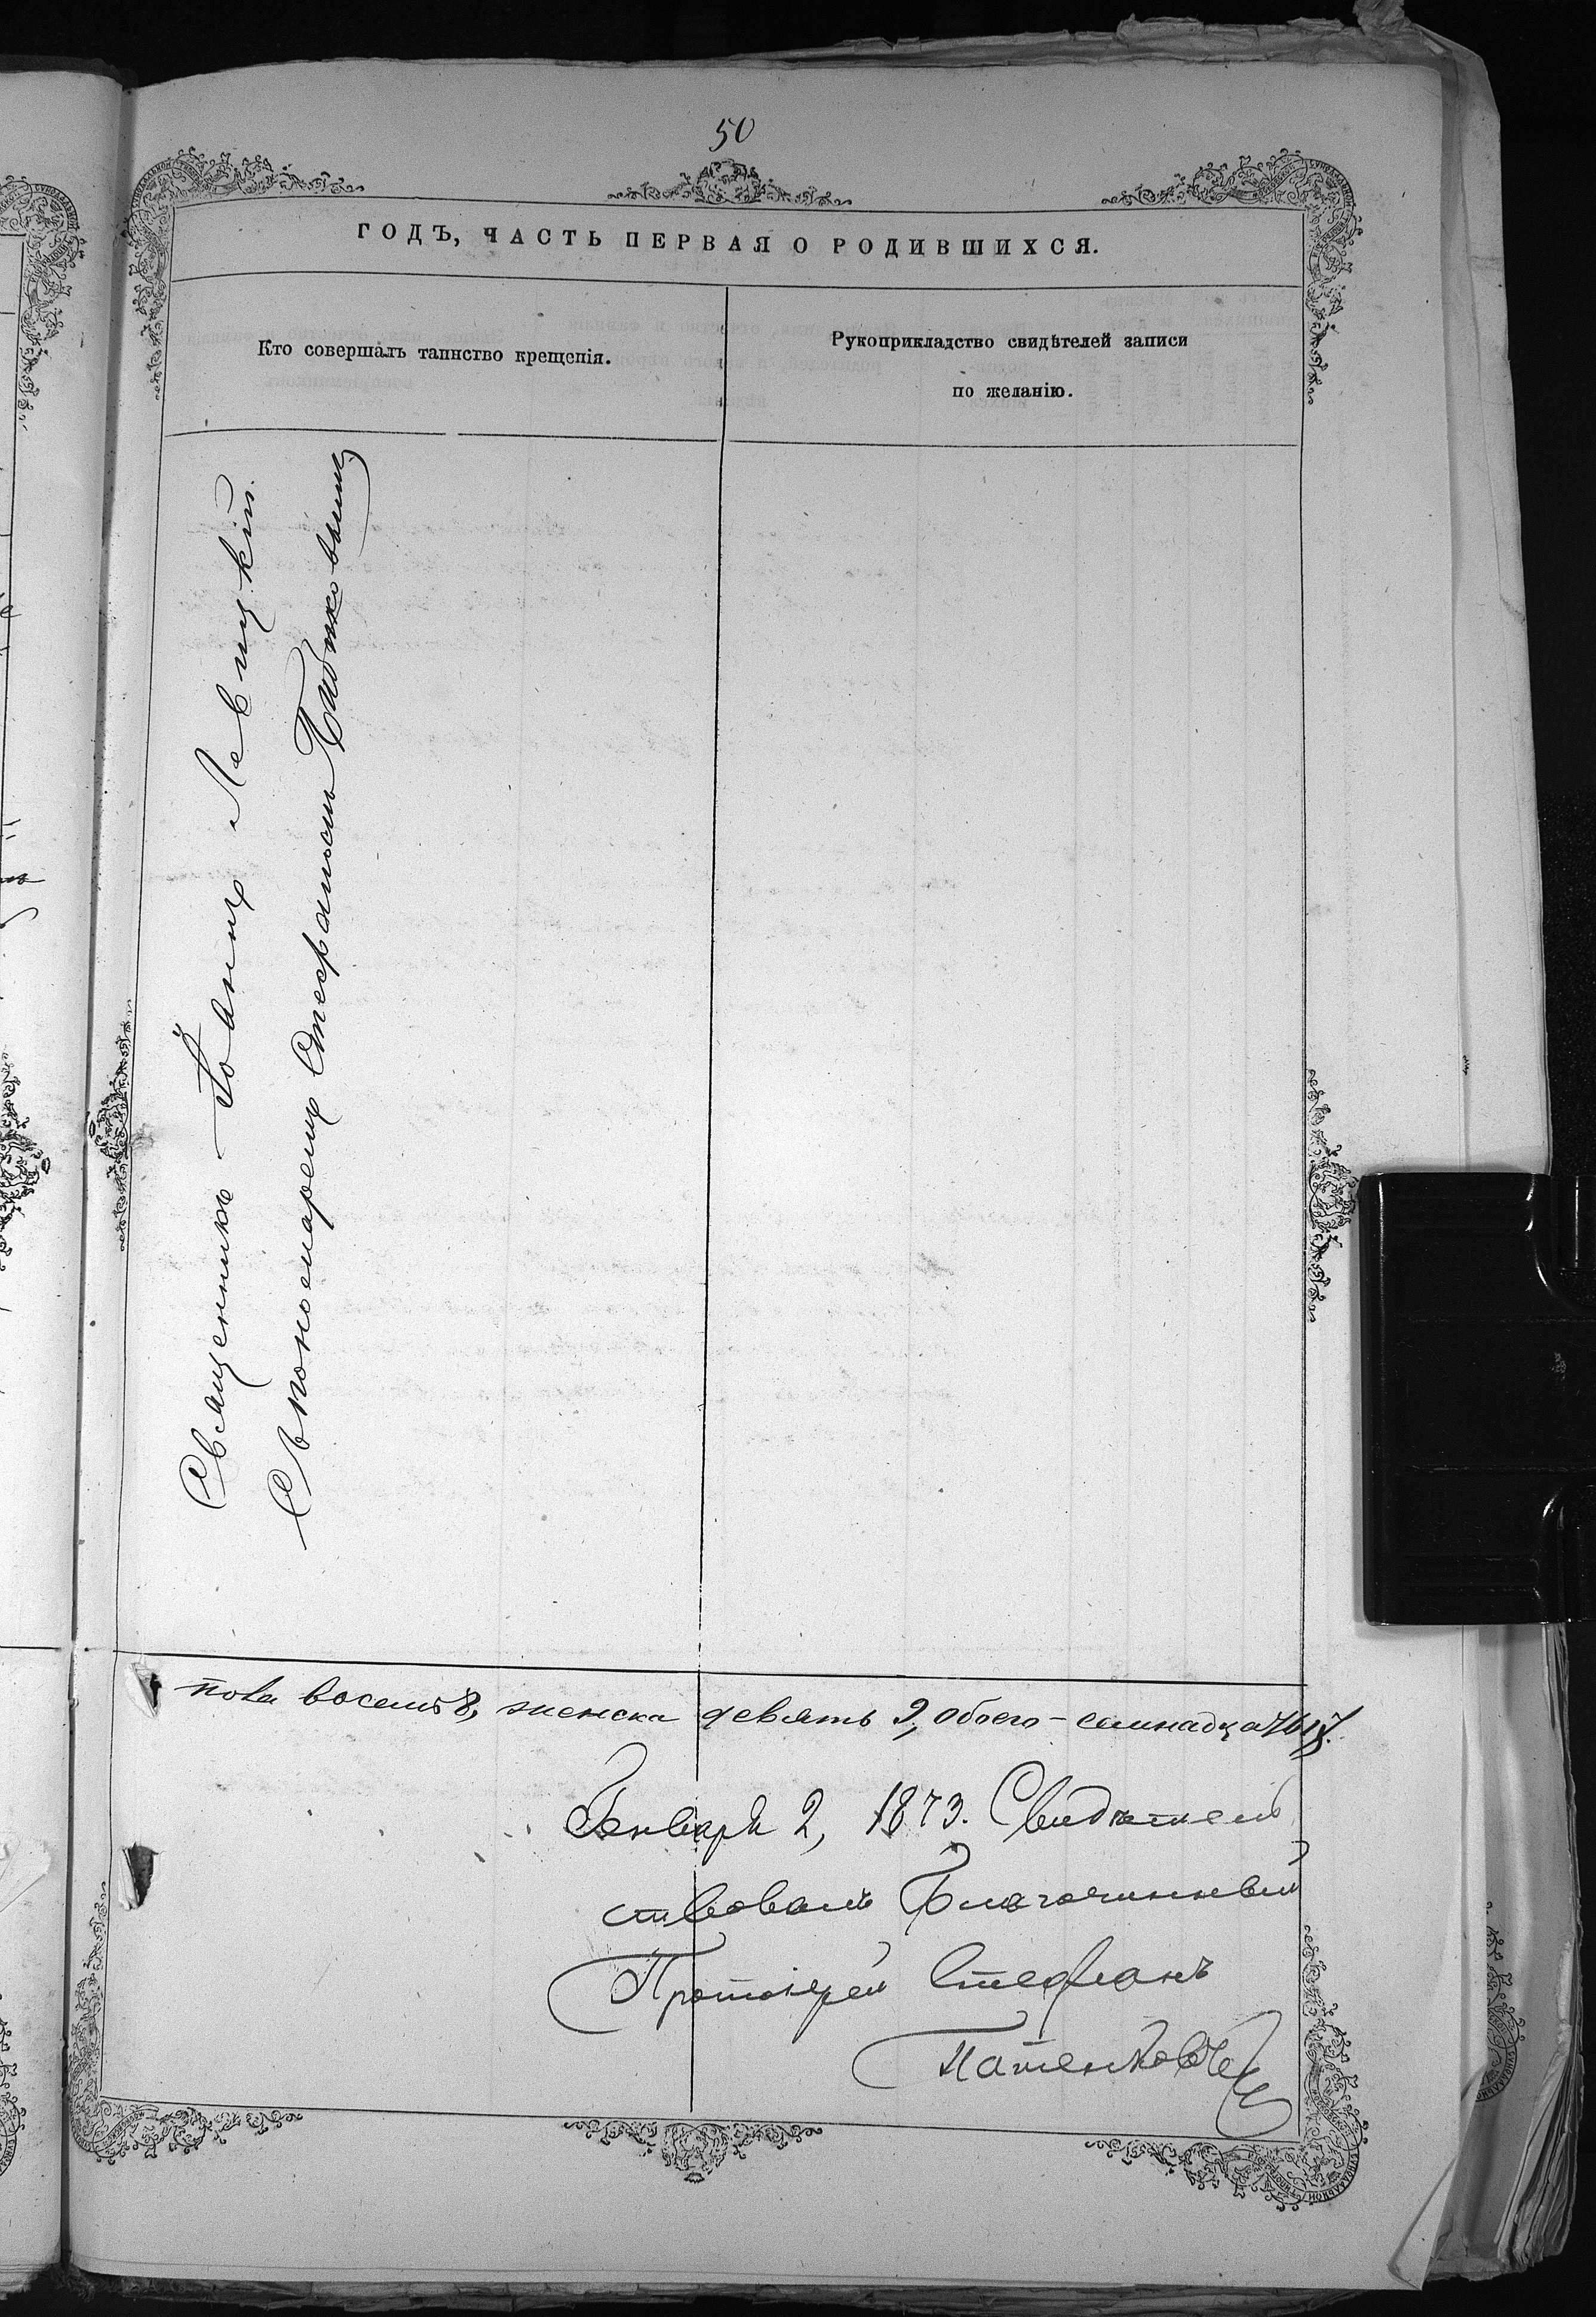 50
ГОДЪ, ЧАСТЬ ПЕРВАЯ О РОДИВШИХСЯ.
Кто совершалъ таинство крещенія.
Рукоприкладство свидѣтелей записи
по желанію.
Священникъ Іоаннъ Левицкій.
Съ пономаремъ Стефаномъ
пола восемь 8, женска девять 9, обоего - семнадцать 17.
Января 2, 1873. Свидѣтель
ствовалъ Благочинный
Протоіерей Стефанъ